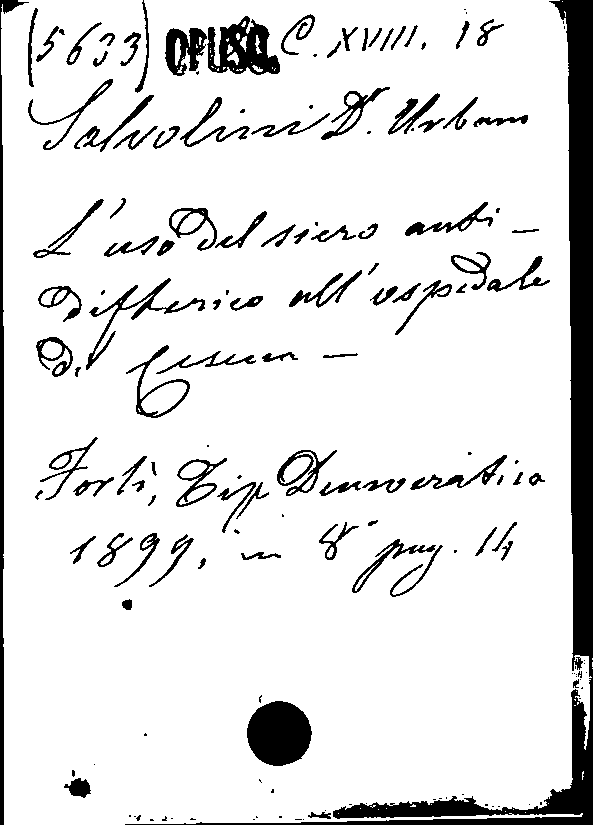 (5633) OPUSC. C. XVIII. 18
Salvolini Dr. Urbano
L'uso del siero anti-
difterico all'ospedale
di Cesena -
Forlì, Tip Democratica
1899, in 8° pag. 14